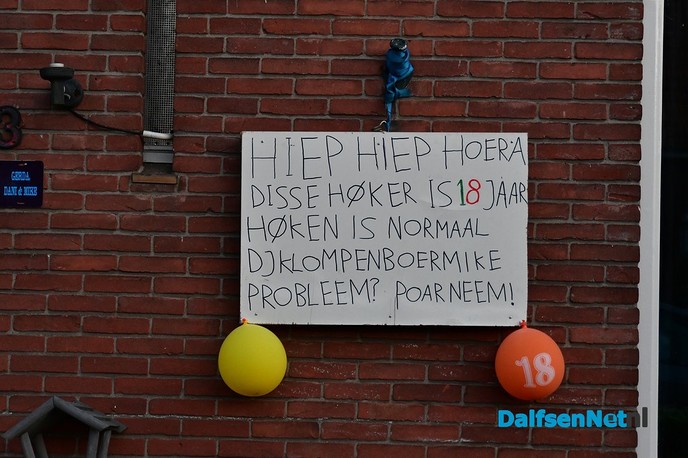 3
GERDA
DANI & MIKE
HIEP HIEP HOERA
DISSE HØKER IS 18 JAAR
HØKEN IS NORMAAL
DJKLOMPENBOERMIKE
PROBLEEM? POARNEEM!
18
DalfsenNet.nl